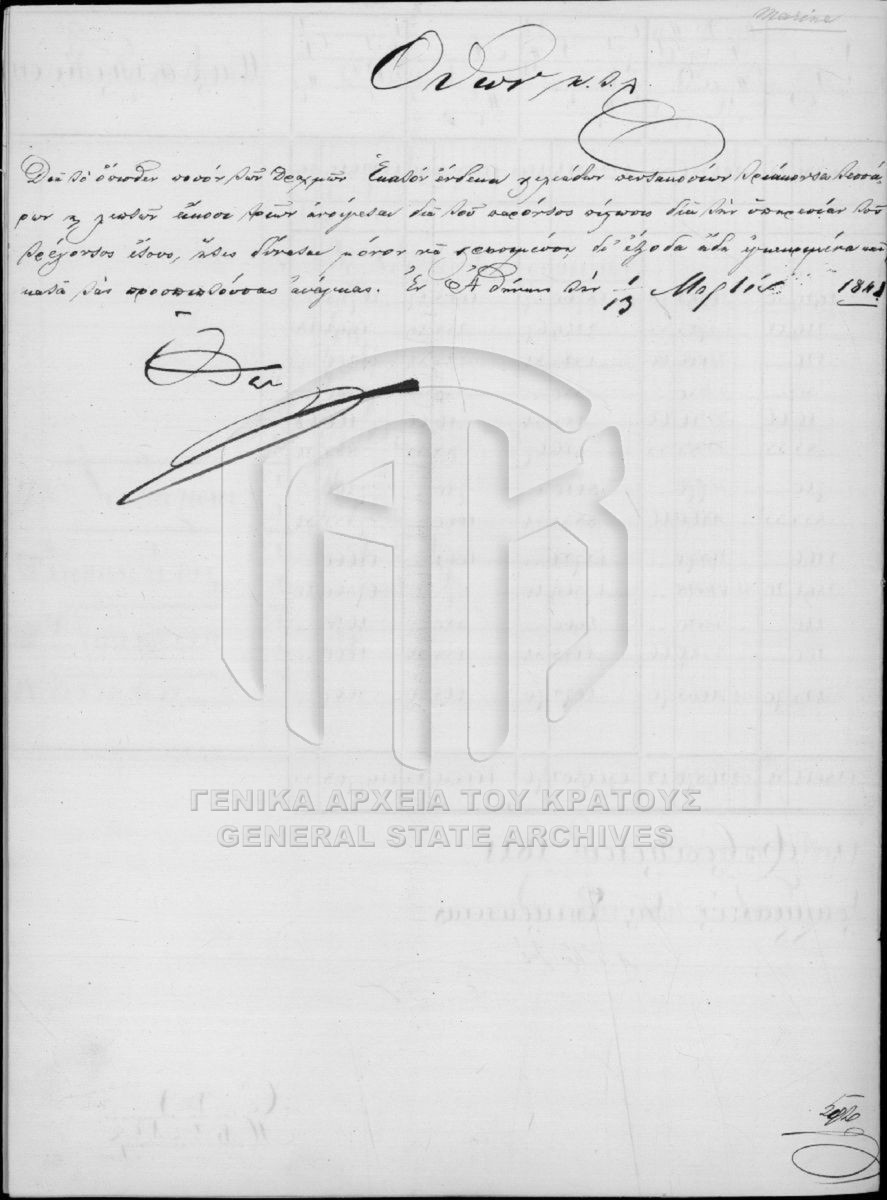 Marine
Ὄθων κ.τ.λ.
Διὰ τὸ ὄπισθεν ποσὸν τῶν Δραχμῶν Ἑκατὸν ἕνδεκα χιλιάδων πεντακοσίων τριάκοντα τεσσά-
ρων κ λεπτῶν εἴκοσι τριῶν ἀνοίγεται διὰ τοῦ παρόντος πίστωσις διὰ τὴν ὑπηρεσίαν τοῦ
τρέχοντος ἔτους, ἥτις δύναται μόνον νὰ χρησιμεύσῃ δι' ἔξοδα ἤδη ἐγκεκριμένα καὶ
κατὰ τὰς προσπιπτούσας ἀνάγκας. Ἐν Ἀθήναις τὴν 13 Μαρτίου 1841
Ὄθων
ΓΕΝΙΚΑ ΑΡΧΕΙΑ ΤΟΥ ΚΡΑΤΟΥΣ
GENERAL STATE ARCHIVES